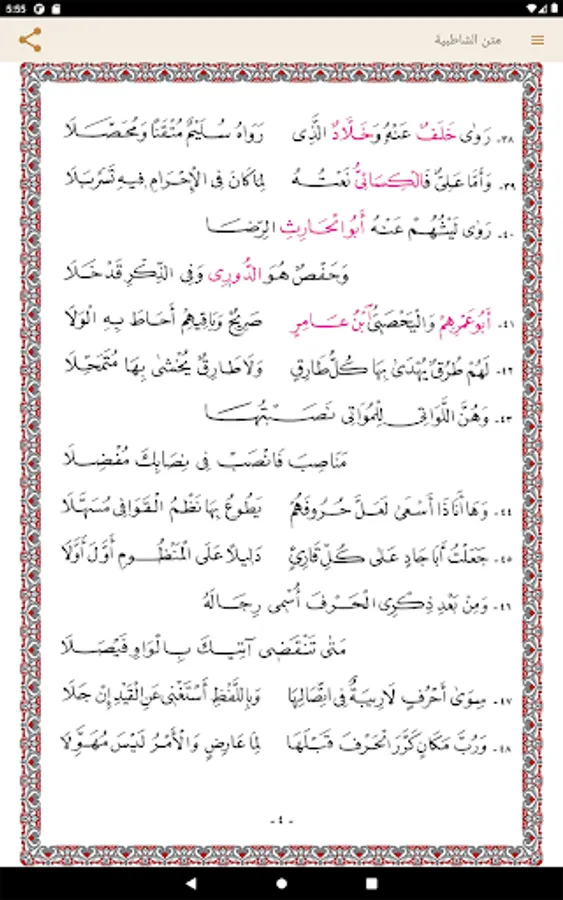 5:55
متن الشاطبية
٣٨. رَوَى خَلَفٌ عَنْهُ وَخَلَّادٌ الَّذِي رَوَاهُ سُلَيْمٌ مُتْقَنًا وَمُحَصَّلَا
٣٩. وَأَمَّا عَلِيٌّ فَالْكِسَائِيُّ نَعْتُهُ لِمَا كَانَ فِي الْإِحْرَامِ فِيهِ تَسَرْبَلَا
٤٠. رَوَى لَيْثُهُمْ عَنْهُ أَبُو الْحَارِثِ الرِّضَا
وَحَفْصٌ هُوَ الدُّورِي وَفِي الذِّكْرِ قَدْ خَلَا
٤١. أَبُو عَمْرِهِمْ وَالْيَحْصَبِيُّ ابْنُ عَامِرٍ صَرِيحٌ وَبَاقِيهِمْ أَحَاطَ بِهِ الْوَلَا
٤٢. لَهُمْ طُرُقٌ يُهْدَى بِهَا كُلُّ طَارِقٍ وَلَا طَارِقٌ يُخْشَى بِهَا مُتَمَحِّلَا
٤٣. وَهُنَّ اللَّوَاتِي لِلْمُوَاتِي نَصَبْتُهَا
مَنَاصِبَ فَانْصَبْ فِي نِصَابِكَ مُفْضِلَا
٤٤. وَهَا أَنَا ذَا أَسْعَى لَعَلَّ حُرُوفَهُمْ يَطُوعُ بِهَا نَظْمُ الْقَوَافِي مُسَهَّلَا
٤٥. جَعَلْتُ أَبَا جَادٍ عَلَى كُلِّ قَارِئٍ دَلِيلًا عَلَى الْمَنْظُومِ أَوَّلَ أَوَّلَا
٤٦. وَمِنْ بَعْدِ ذِكْرِي الْحَرْفَ أُسْمِي رِجَالَهُ
مَتَى تَنْقَضِي آتِيكَ بِالْوَاوِ فَيْصَلَا
٤٧. سِوَى أَحْرُفٍ لَا رِيبَةٌ فِي اتِّصَالِهَا وَبِاللَّفْظِ أَسْتَغْنِي عَنِ الْقَيْدِ إِنْ جَلَا
٤٨. وَرُبَّ مَكَانٍ كَرَّرَ الْحَرْفَ قَبْلَهَا لِمَا عَارِضٍ وَالْأَمْرُ لَيْسَ مُهَوِّلَا
- ٤ -